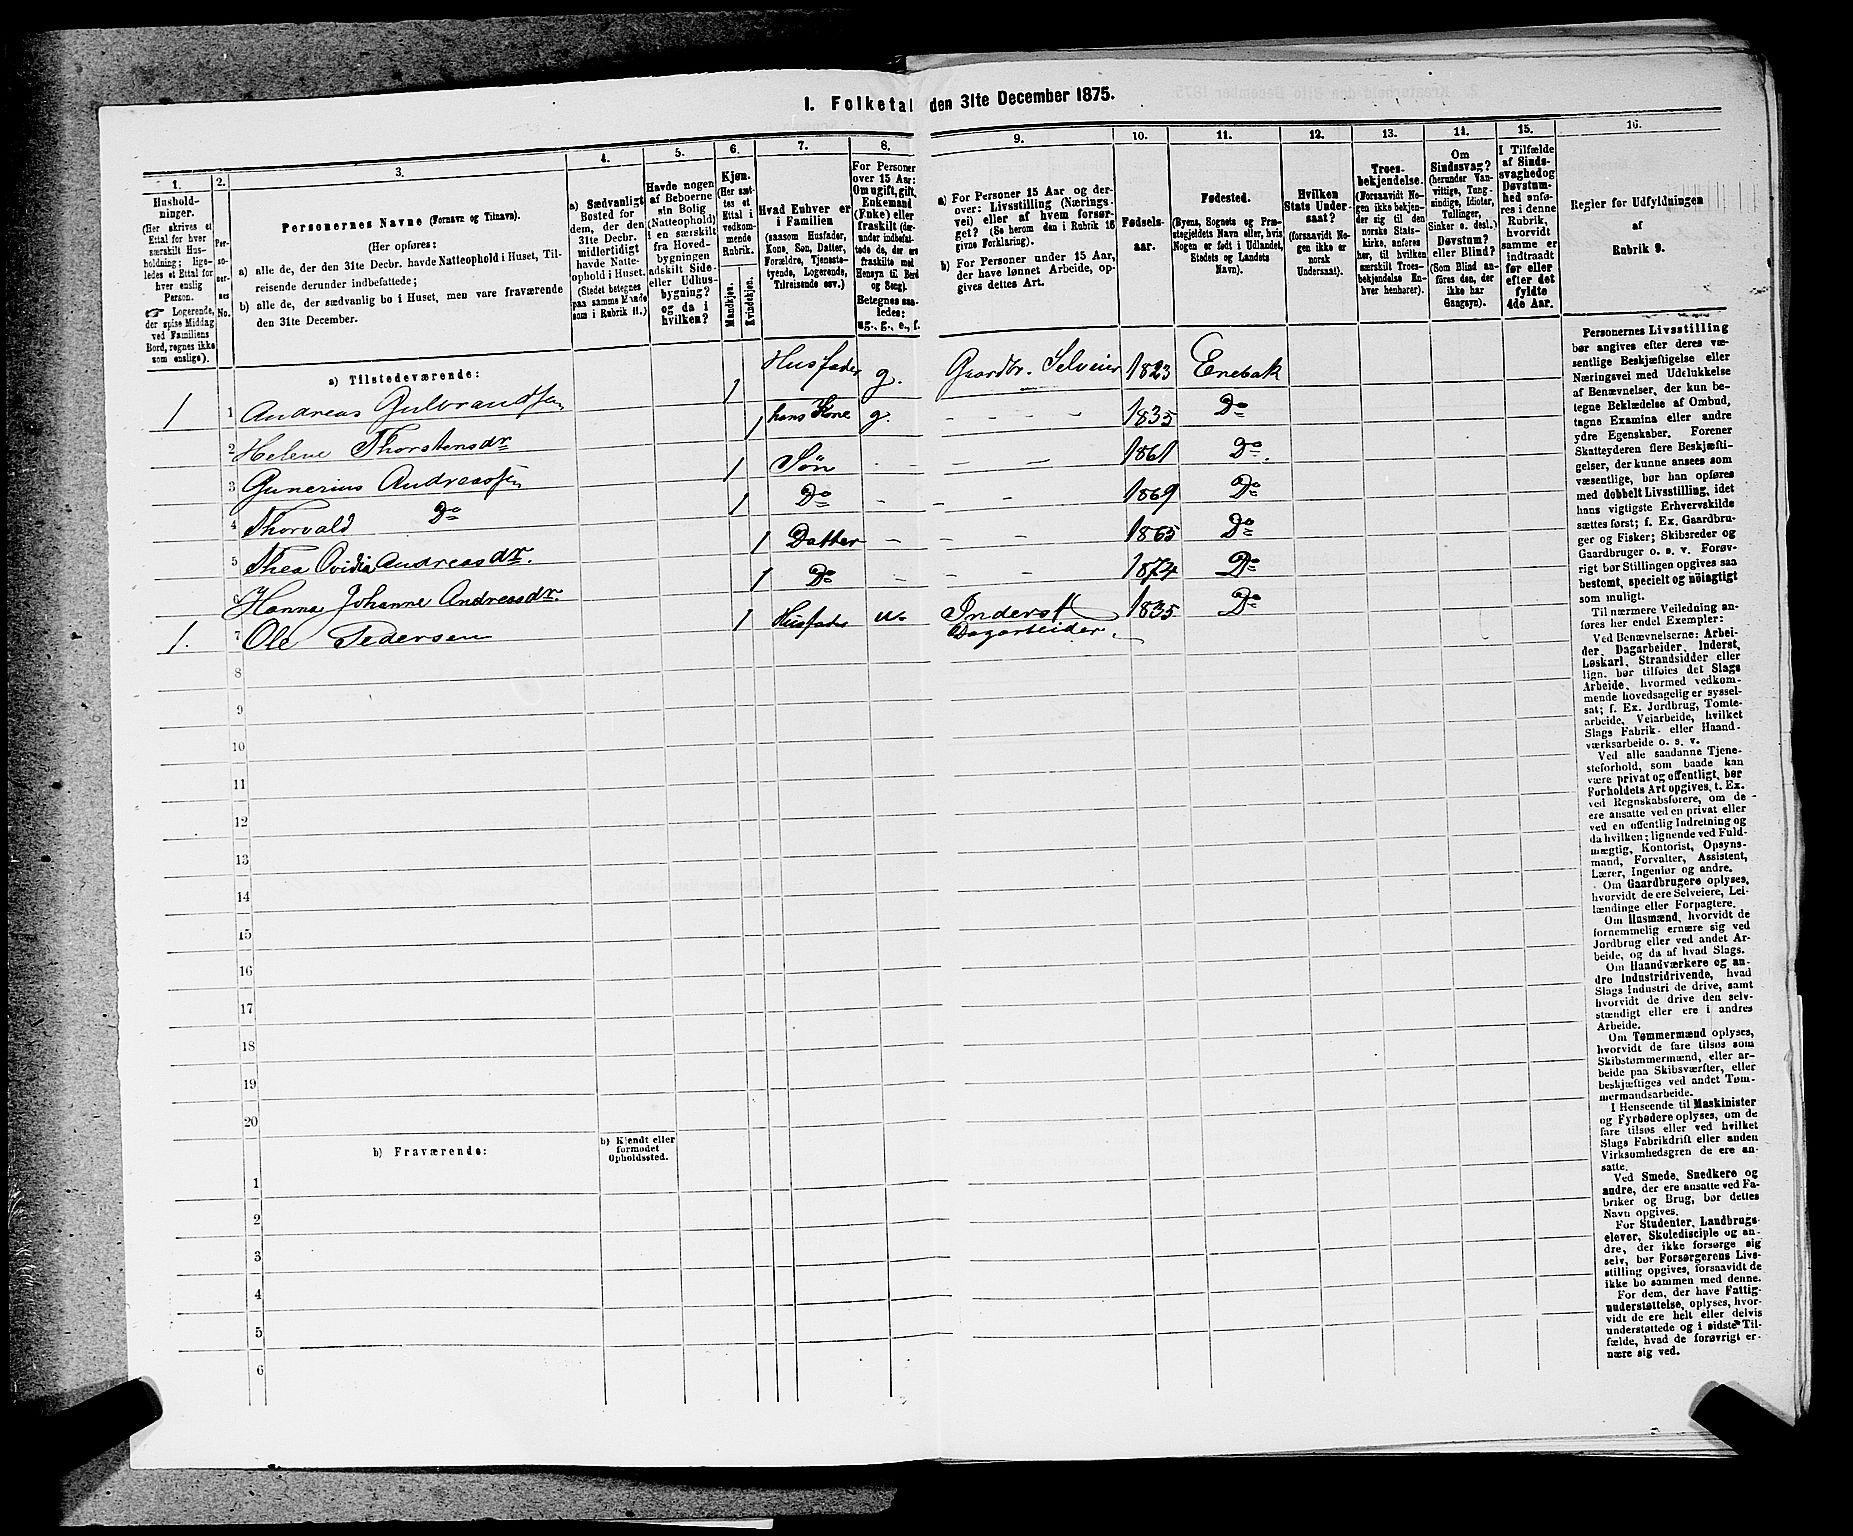 1. Folketal den 31te December 1875.
1. 2. 3. 4. 5. 6. 7. 8. 9. 10. 11. 12. 13. 14. 15. 16.
Hushold-
ninger.
(Her skrives et
Ettal for hver
særskilt Hus-
holdning; lige-
ledes et Ettal for
hver enslig
Person.
☞ Logerende,
der spise Middag
ved Familiens
Bord, regnes ikke
som enslige).
Per-
so-
ner-
nes
No.
Personernes Navne (Fornavn og Tilnavn).
(Her opføres:
a) alle de, der den 31te Decbr. havde Natteophold i Huset, Til-
reisende derunder indbefattede;
b) alle de, der sædvanlig bo i Huset, men vare fraværende
den 31te December.
a) Sædvanligt
Bosted for
dem, der den
31te Decbr.
midlertidigt
havde Natte-
ophold i Huset.
(Stedet betegnes
paa samme Maade
som i Rubrik 11.)
Havde nogen
af Beboerne
sin Bolig
(Natteophold)
i en særskilt
fra Hoved-
bygningen
adskilt Side-
eller Udhus-
bygning?
og da i
hvilken?
Kjøn.
(Her sæt-
tes et
Ettal i
vedkom-
mende
Rubrik.
Mandkjøn.
Kvindekjøn.
Hvad Enhver er
i Familien
(saasom Husfader,
Kone, Søn, Datter,
Forældre, Tjeneste-
tyende, Logerende,
Tilreisende osv.)
For Personer
over 15 Aar:
Om ugift, gift,
Enkemand
(Enke) eller
fraskilt (der-
under indbefat-
tede de, der ere
fraskilte med
Hensyn til Bord
og Seng).
Betegnes saa-
ledes:
ug., g., e., f.
a) For Personer 15 Aar og der-
over: Livsstilling (Nærings-
vei) eller af hvem forsør-
get? (Se herom den i Rubrik 16
givne Forklaring).
b) For Personer under 15 Aar,
der have lønnet Arbeide, op-
gives dettes Art.
Fødsels-
aar.
Fødested.
(Byens, Sognets og Præ-
stegjeldets Navn eller, hvis
Nogen er født i Udlandet,
Stedets og Landets
Navn).
Hvilken
Stats Under-
saat?
(forsaavidt No-
gen ikke er
norsk
Undersaat).
Troes-
bekjendelse.
(Forsaavidt No-
gen ikke bekjen-
der sig til den
norske Stats-
kirke, anføres
her, til hvilken
særskilt Troes-
bekjendelse En-
hver henhører).
Om
Sindssvag?
(herunder Van-
vittige, Tung-
sindige, Idioter,
Tullinger,
Sinker o. desl.)
Døvstum?
eller Blind?
(Som Blind an-
føres den, der
ikke har
Gangsyn).
I Tilfælde
af Sinds-
svaghed og
Døvstum-
hed anfø-
res i denne
Rubrik,
hvorvidt
samme er
indtraadt
før eller
efter det
fyldte
4de Aar.
Regler for Udfyldningen
af
Rubrik 9.
a) Tilstedeværende:
1 1 Andreas Gulbrandsen 1 Husfader g. Gaardbr. Selveier 1823 Enebak
2 Helene Thorstensdr 1 hans Kone g. - - - 1835 Do
3 Gunerius Andreassen 1 Søn - - - 1861 Do.
4 Thorvald Do 1 Do - - - 1869 Do
5 Thea Ovidia Andreasdr. 1 Datter - - - 1865 Do
6 Hanna Johanne Andreasdr. 1 Do - - - 1874 Do
1. 7 Ole Pedersen 1 Husfader u. Inderst 1835 Do
Dagarbeider.
8
9
10
11
12
13
14
15
16
17
18
19
20
b) Fraværende:
b) Kjendt eller
formodet
Opholdssted.
1
2
3
4
5
6
Personernes Livsstilling
bør angives efter deres væ-
sentlige Beskjæftigelse eller
Næringsvei med Udelukkelse
af Benævnelser, der kun be-
tegne Beklædelse af Ombud,
tagne Examina eller andre
ydre Egenskaber. Forener
Skatteyderen flere Beskjæfti-
gelser, der kunne ansees som
væsentlige, bør han opføres
med dobbelt Livsstilling, idet
hans vigtigste Erhvervskilde
sættes først; f. Ex. Gaardbru-
ger og Fisker; Skibsreder og
Gaardbruger o. s. v. Forøv-
rigt bør Stillingen opgives saa
bestemt, specielt og nøiagtigt
som muligt.
Til nærmere Veiledning an-
føres her endel Exempler:
Ved Benævnelserne: Arbei-
der, Dagarbeider, Inderst,
Løskarl, Strandsidder eller
lign. bør tilføies det Slags
Arbeide, hvormed vedkom-
mende hovedsagelig er syssel-
sat; f. Ex. Jordbrug, Tomte-
arbeide, Veiarbeide, hvilket
Slags Fabrik- eller Haand-
værksarbeide o. s. v.
Ved alle saadanne Tjene-
steforhold, som baade kan
være privat og offentligt, bør
Forholdets Art opgives, t. Ex.
ved Regnskabsførere, om de
ere ansatte ved en privat eller
ved en offentlig Indretning og
da hvilken; lignende ved Fuld-
mægtig, Kontorist, Opsyns-
mand, Forvalter, Assistent,
Lærer, Ingeniør og andre.
Om Gaardbrugere oplyses,
hvorvidt de ere Selveiere, Lei-
lændinge eller Forpagtere.
Om Husmænd, hvorvidt de
fornemmelig ernære sig ved
Jordbrug eller ved andet Ar-
beide, og da af hvad Slags.
Om Haandværkere og an-
dre Industridrivende, hvad
Slags Industri de drive, samt
hvorvidt de drive den selv-
stændigt eller ere i andres
Arbeide.
Om Tømmermænd oplyses,
hvorvidt de fare tilsøs som
Skibstømmermænd, eller ar-
beide paa Skibsværfter, eller
beskjæftiges ved andet Tøm-
mermandsarbeide.
I Henseende til Maskinister
og Fyrbødere oplyses, om de
fare tilsøs eller ved hvilket
Slags Fabrikdrift eller anden
Virksomhedsgren de ere an-
satte.
Ved Smede, Snedkere og
andre, der ere ansatte ved Fa-
briker og Brug, bør dettes
Navn opgives.
For Studenter, Landbrugs-
elever, Skoledisciple og an-
dre, der ikke forsørge sig
selv, bør Forsørgerens Livs-
stilling opgives, forsaavidt de
ikke bo sammen med denne.
For dem, der have Fattig-
understøttelse, oplyses, hvor-
vidt de ere helt eller delvis
understøttede og i sidste Til-
fælde, hvad de forøvrigt er-
nære sig ved.